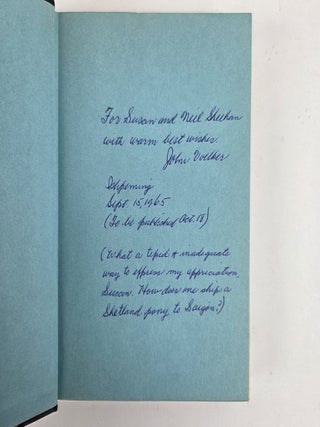 For Susan and Neil Sheehan
with warm best wishes.
John Voelker
Ishpeming
Sept. 15, 1965
(To be published Oct. 18)
(What a tepid & inadequate
way to express my appreciation,
Susan. How does one ship a
Shetland pony to Saigon?)